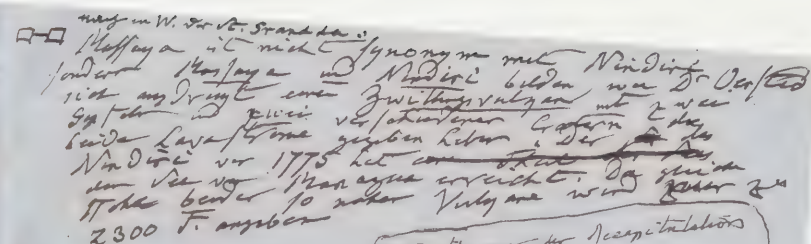 nach in W. der St. Granada:
Massaya ist nicht Synonym mit Nindiri
sondern Massaya und Nindiri bilden wie Dr Oersted
sich ausdrückt einen Zwillingsvulkan mit zwei
Gipfeln und zwei verschiedenen Cratern die
beide Lavaströme gegeben haben. Der des
Nindiri von 1775 hat
den See von Managua erreicht. Die gleiche
Höhe beider so naher Vulkane wird zu
2300 F. angeben
der Recapitulations